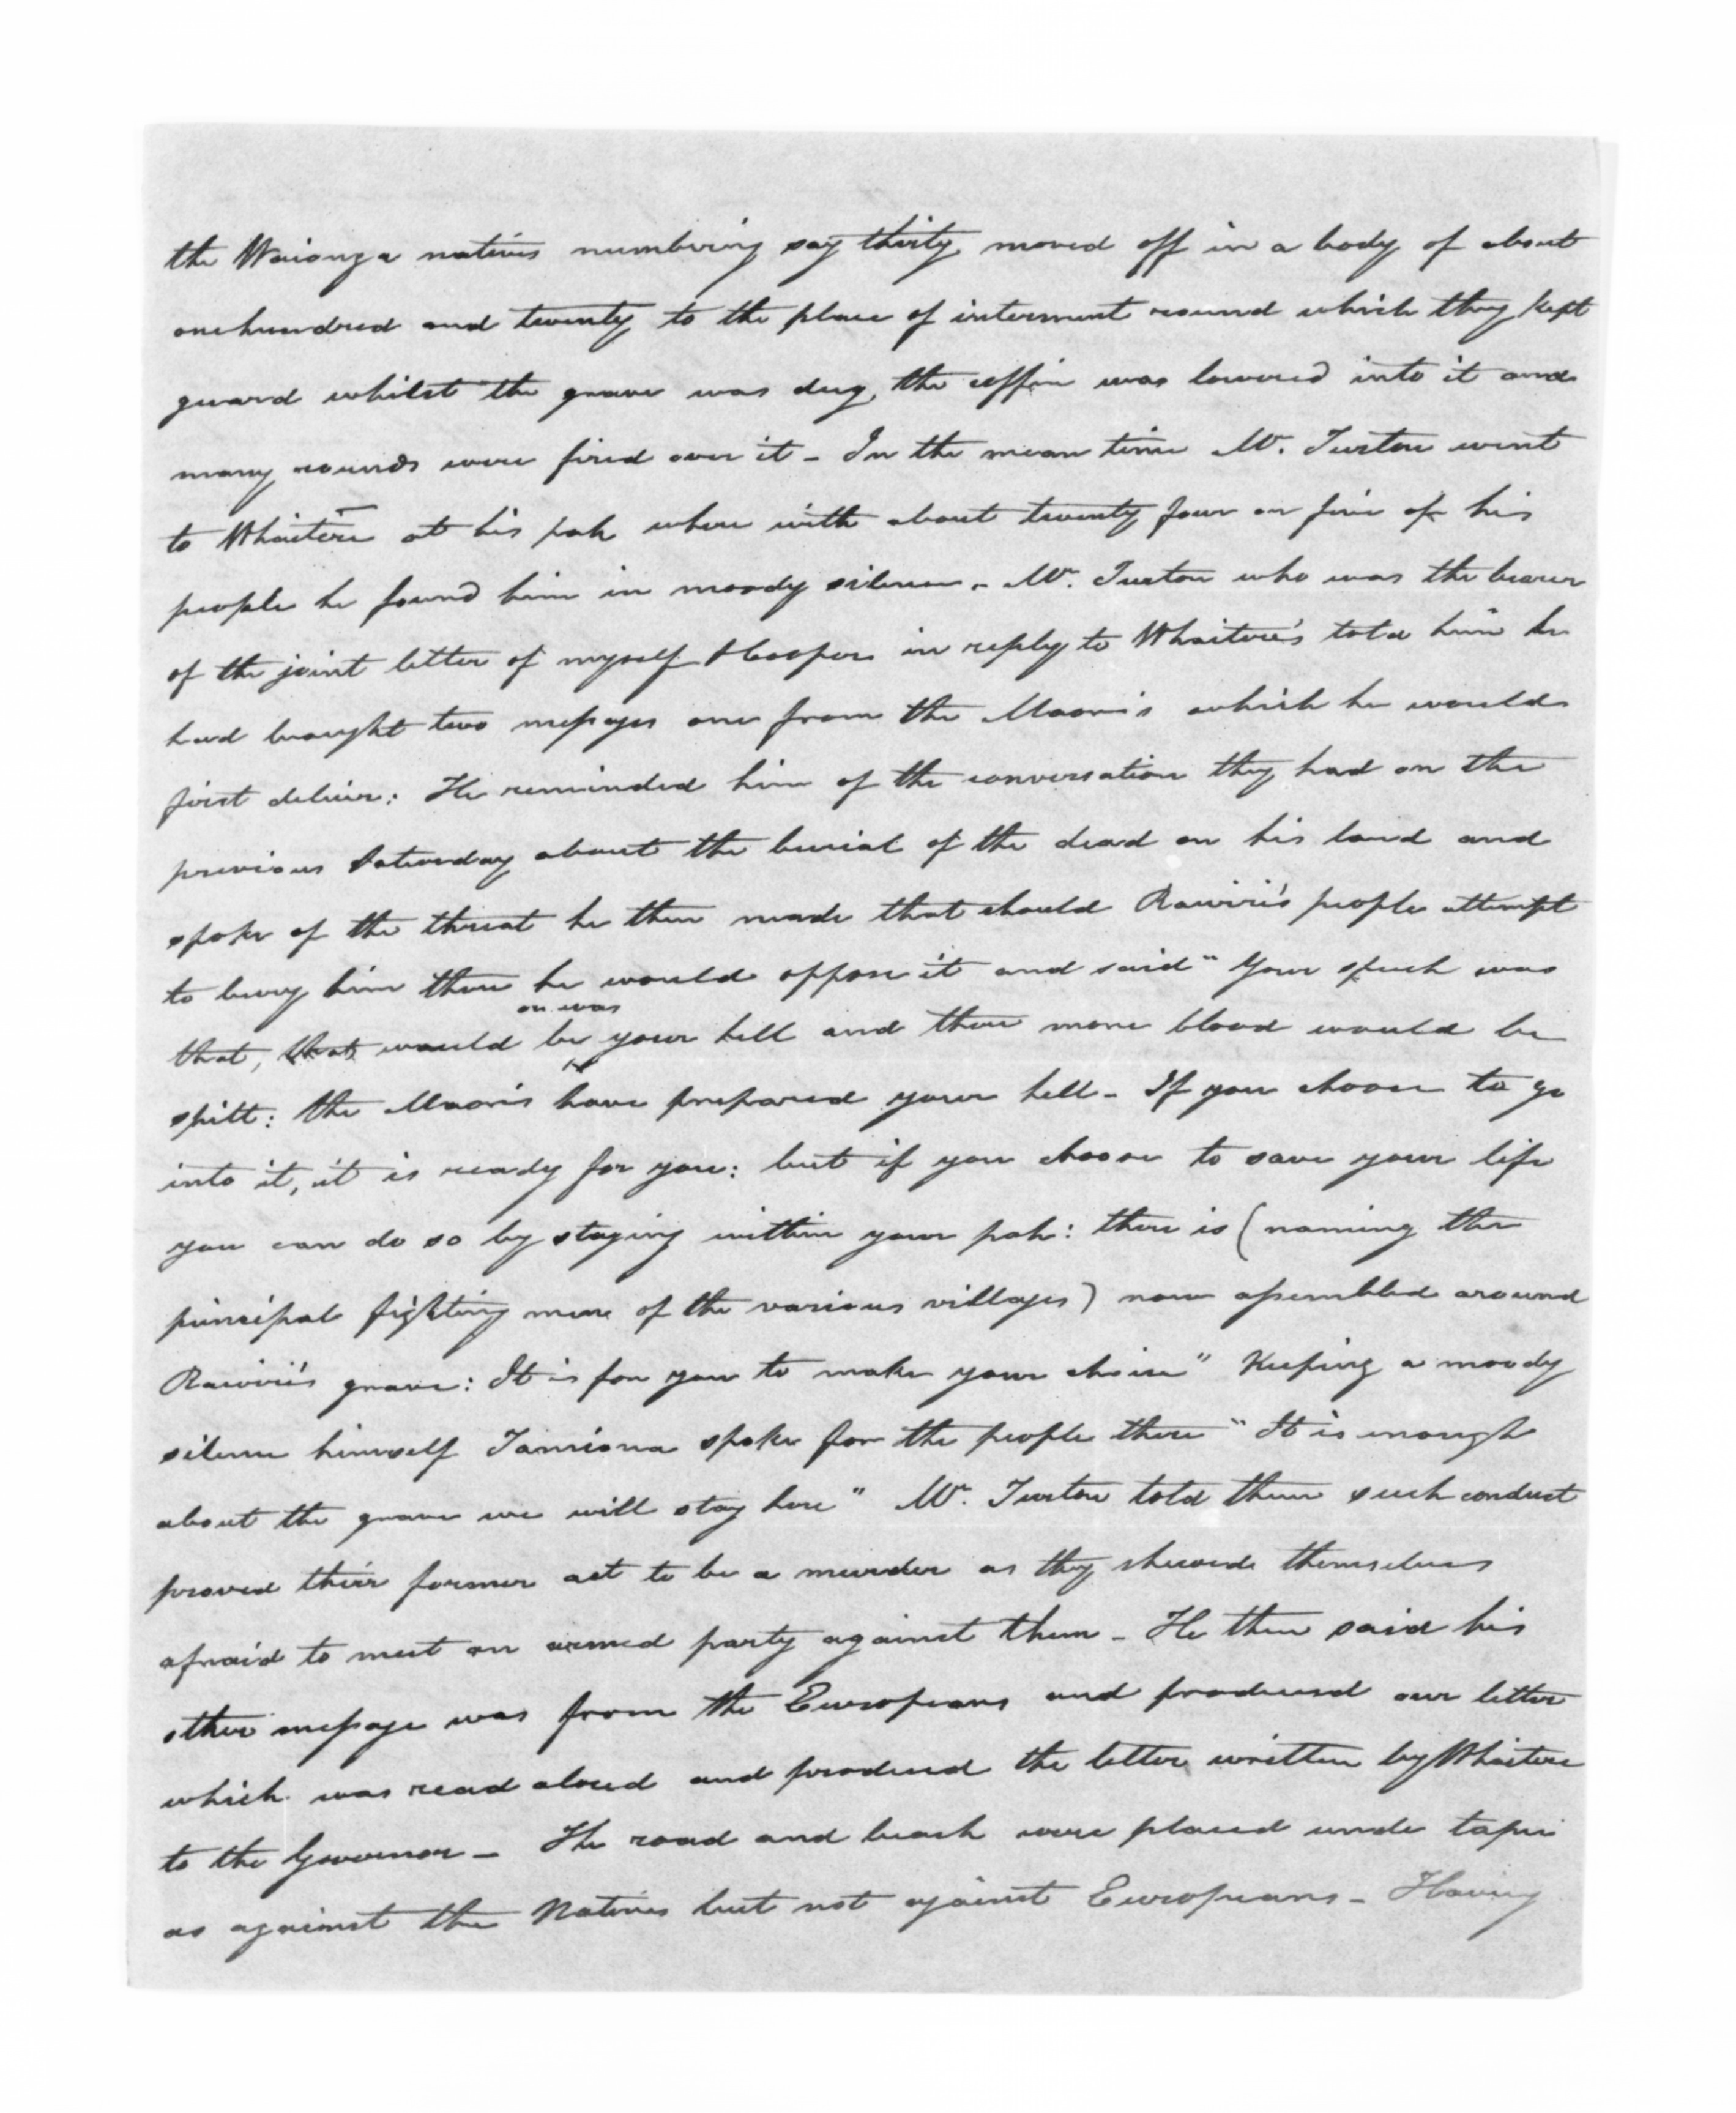 the Waionga natives numbering say thirty, moved off in a body of about
onehundred and twenty to the place of interment round which they kept
guard whilst the grave was dug, the coffin was lowered into it and
many rounds were fired over it - In the mean time Mr. Turton went
to Whaitere at his pah where with about twenty four or five of his
people he found him in moody silence - Mr. Turton who was the bearer
of the joint letter of myself & Cooper in reply to Whaitere's told him he
had brought two messages one from the Maoris which he would
first deliver: He reminded him of the conversation they had on the
previous Saturday about the burial of the dead on his land and
spoke of the threat he then made that should Rawiri's people attempt
to bury him there he would oppose it and said "Your speech was
on was
that, that would be your hell and there more blood would be
spilt: the Maoris have prepared your hell - If you choose to go
into it, it is ready for you: but if you choose to save your life
you can do so by staying within your pah: there is (naming the
principal fighting men of the various villages) now assembled around
Rawiri's grave: It is for you to make your choice" Keeping a moody
silence himself Tamiona spoke for the people there "It is enough
about the grave we will stay here" Mr. Turton told them such conduct
proved their former act to be a murder as they shewed themselves
afraid to meet an armed party against them - He then said his
other message was from the Europeans and produced our letter
which was read aloud and produced the letter written by Whaitere
to the Governor - The road and beach were placed unde tapu
as against the Natives but not against Europeans - Having